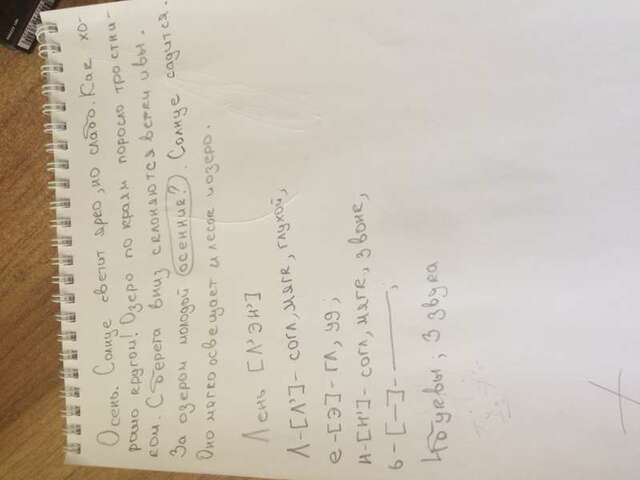 Осень. Солнце светит ярко, но слабо. Как хо-
рошо кругом! Озеро по краям поросло тростни-
ком. С берега вниз склоняются ветки ивы.
За озером молодой осенние? . Солнце садится.
Оно мягко освещает и лесок и озеро.
Лень [Л'ЭН']
Л-[Л']- согл, мягк, глухой,
е-[Э]- гл, уд;
н-[Н']- согл, мягк, звонк,
ь-[—]- ———,
4 буквы; 3 звука